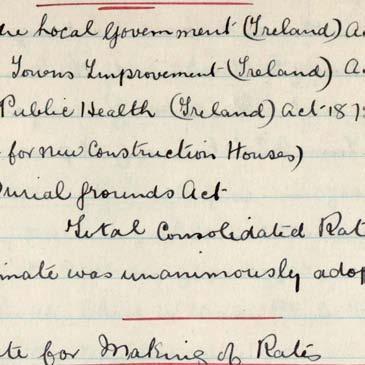 the Local Government (Ireland) A
Towns Improvement (Ireland) A
Public Health (Ireland) Act 187
for new Construction Houses)
Burial grounds Act
Total Consolidated Rat
imate was unanimously adop
te for Making of Rates